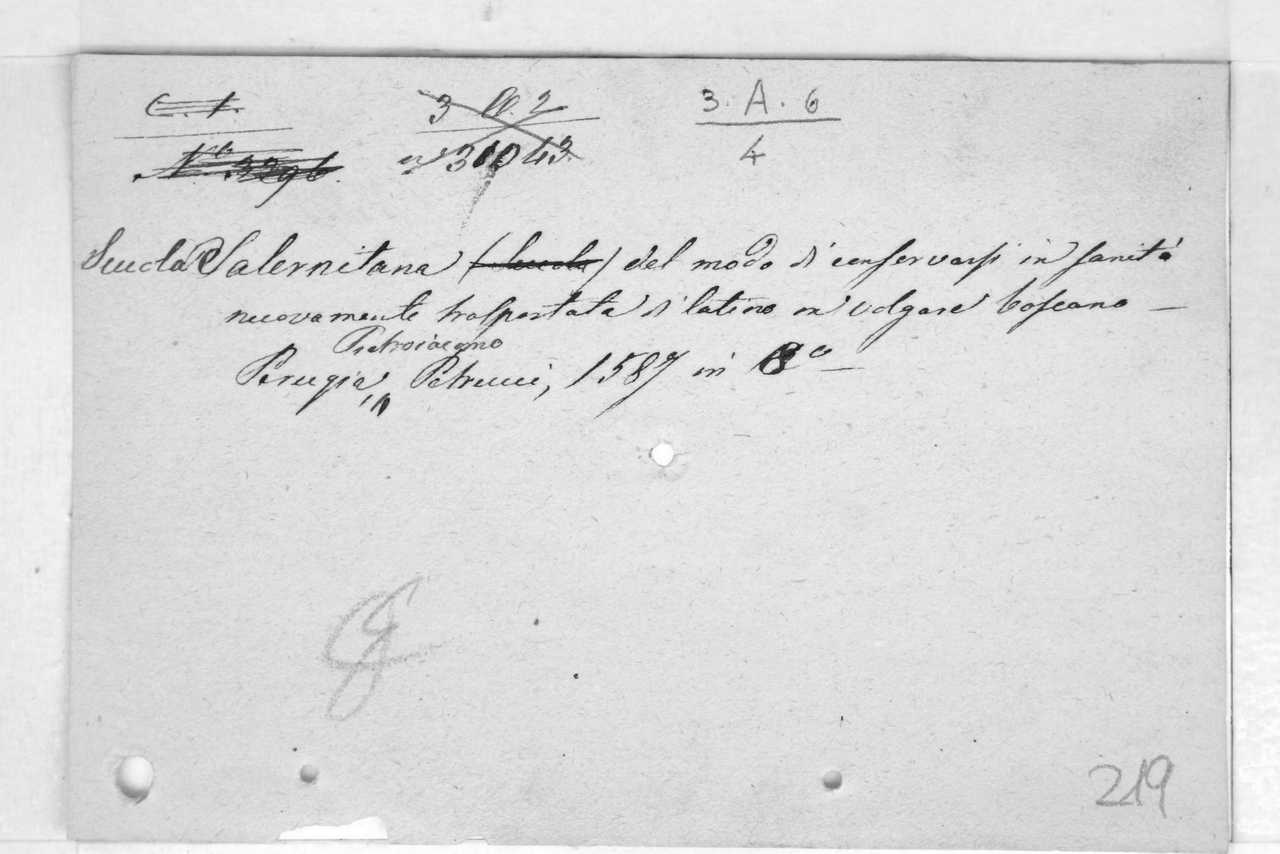 C. 1. 3 3. A. 6
N.° 3296 4
Scuola Salernitana (Scuola) del modo di conservarsi in sanità
nuovamente trasportata di latino in volgare toscano —
Pietroiacomo
Perugia, Petrucci, 1587 in 8° —
219